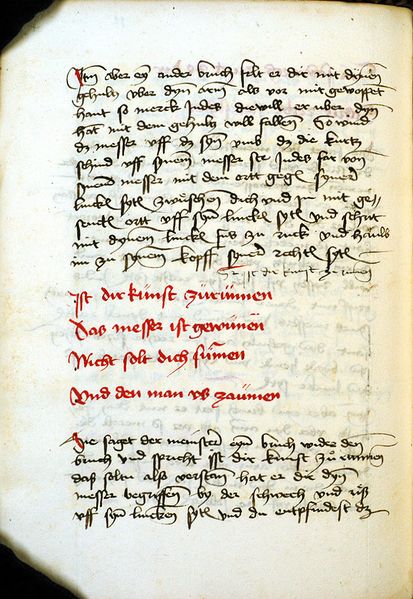 Itm aber eyn ander bruch felt er dir mit dynen
gehultz vber dyn arm als vor mit gewoffet
hant so merck Indes diewill er vber dyn
hat mit dem gehultz will fallen So wind
dz messer vff dz syn vmb dz die kurtz
schnid vff synem messer ste Indes far von
synem messer mit dem ortt gegen syner
linckl sytl zwischen dich vnd jn mit ge=
senckl ortt vff syn linckl sytl vnd schrit
mit dynem linckl fus zu ruck vnd haüb
im zu synem kopff syner rechtl sytl
ist die kunst zu rumen
Ist dir künst zürümen
Das messer ist gewünen
Nicht solt dich sümen
Vnd den man vs zaümen
Hie saget der meinster eyn bruch wider den
bruch vnd spricht isst die kunst zu rumen
daß soltu also verstan hat er dir dyn
messer begriffen by der schwech vnd riß
vff syn lincken sytl vnd du entpfindest dz